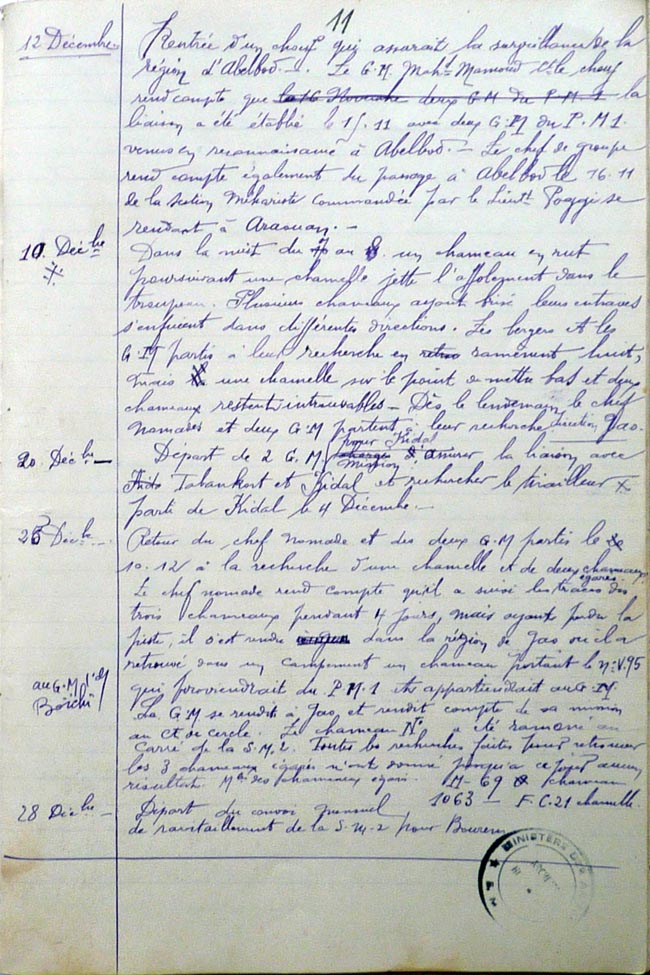 11
12 Décembre
Rentrée d'un chouf qui assurait la surveillance de la
région d'Abelbod. Le G.M. Mamoud chouf
rend compte que le 16 Novembre deux G.M du P.M.1 la
liaison a été établie le 15.11 avec deux G.M du P.M1
venus en reconnaissance à Abelbod. - Le chef de groupe
rend compte également du passage à Abelbod le 16.11
de la section Méhariste commandée par le Lieut Poggi se
rendant à Araouan. -
10. Décbre
Dans la nuit du 7 au 8. un chameau en rut
poursuivant une chamelle jette l'affolement dans le
troupeau. Plusieurs chameaux ayant brisé leurs entraves
s'enfuient dans différentes directions. Les bergers et les
G.M partis à leur recherche en ramènent huit,
mais une chamelle sur le point de mettre bas et deux
chameaux restent introuvables - Dès le lendemain le chef
nomades et deux G.M partent à leur recherche direction Gao.
20. Décbre -
Départ de 2 G.M pour Kidal
mission assurer la liaison avec
Tabankort et Kidal et rechercher le tirailleur
parti de Kidal le 4 Décembre. -
26 Décbre -
Retour du chef nomade et des deux G.M partis le
10.12 à la recherche d'une chamelle et de deux chameaux
égarés.
Le chef nomade rend compte qu'il a suivi les traces des
trois chameaux pendant 4 jours, mais ayant perdu la
piste, il s'est rendu dans la région de Gao où il a
retrouvé dans un campement un chameau portant le n° V.95
au G.M
qui proviendrait du P.M.1 et appartiendrait au G.M.
Le G.M se rendit à Gao et rendit compte de sa mission
au Ct de cercle. Le chameau N° a été ramené au
Carré de la S.M.2. Toutes les recherches faites pour retrouver
les 3 chameaux égarés n'ont donné jusqu'à ce jour aucun
résultat. Mle des chameaux égarés. M-69 chameau
1063 - F.C.21 chamelle
28 Décbre -
Départ du convoi mensuel
de ravitaillement de la S.M.2 pour Bourem
MINISTERE